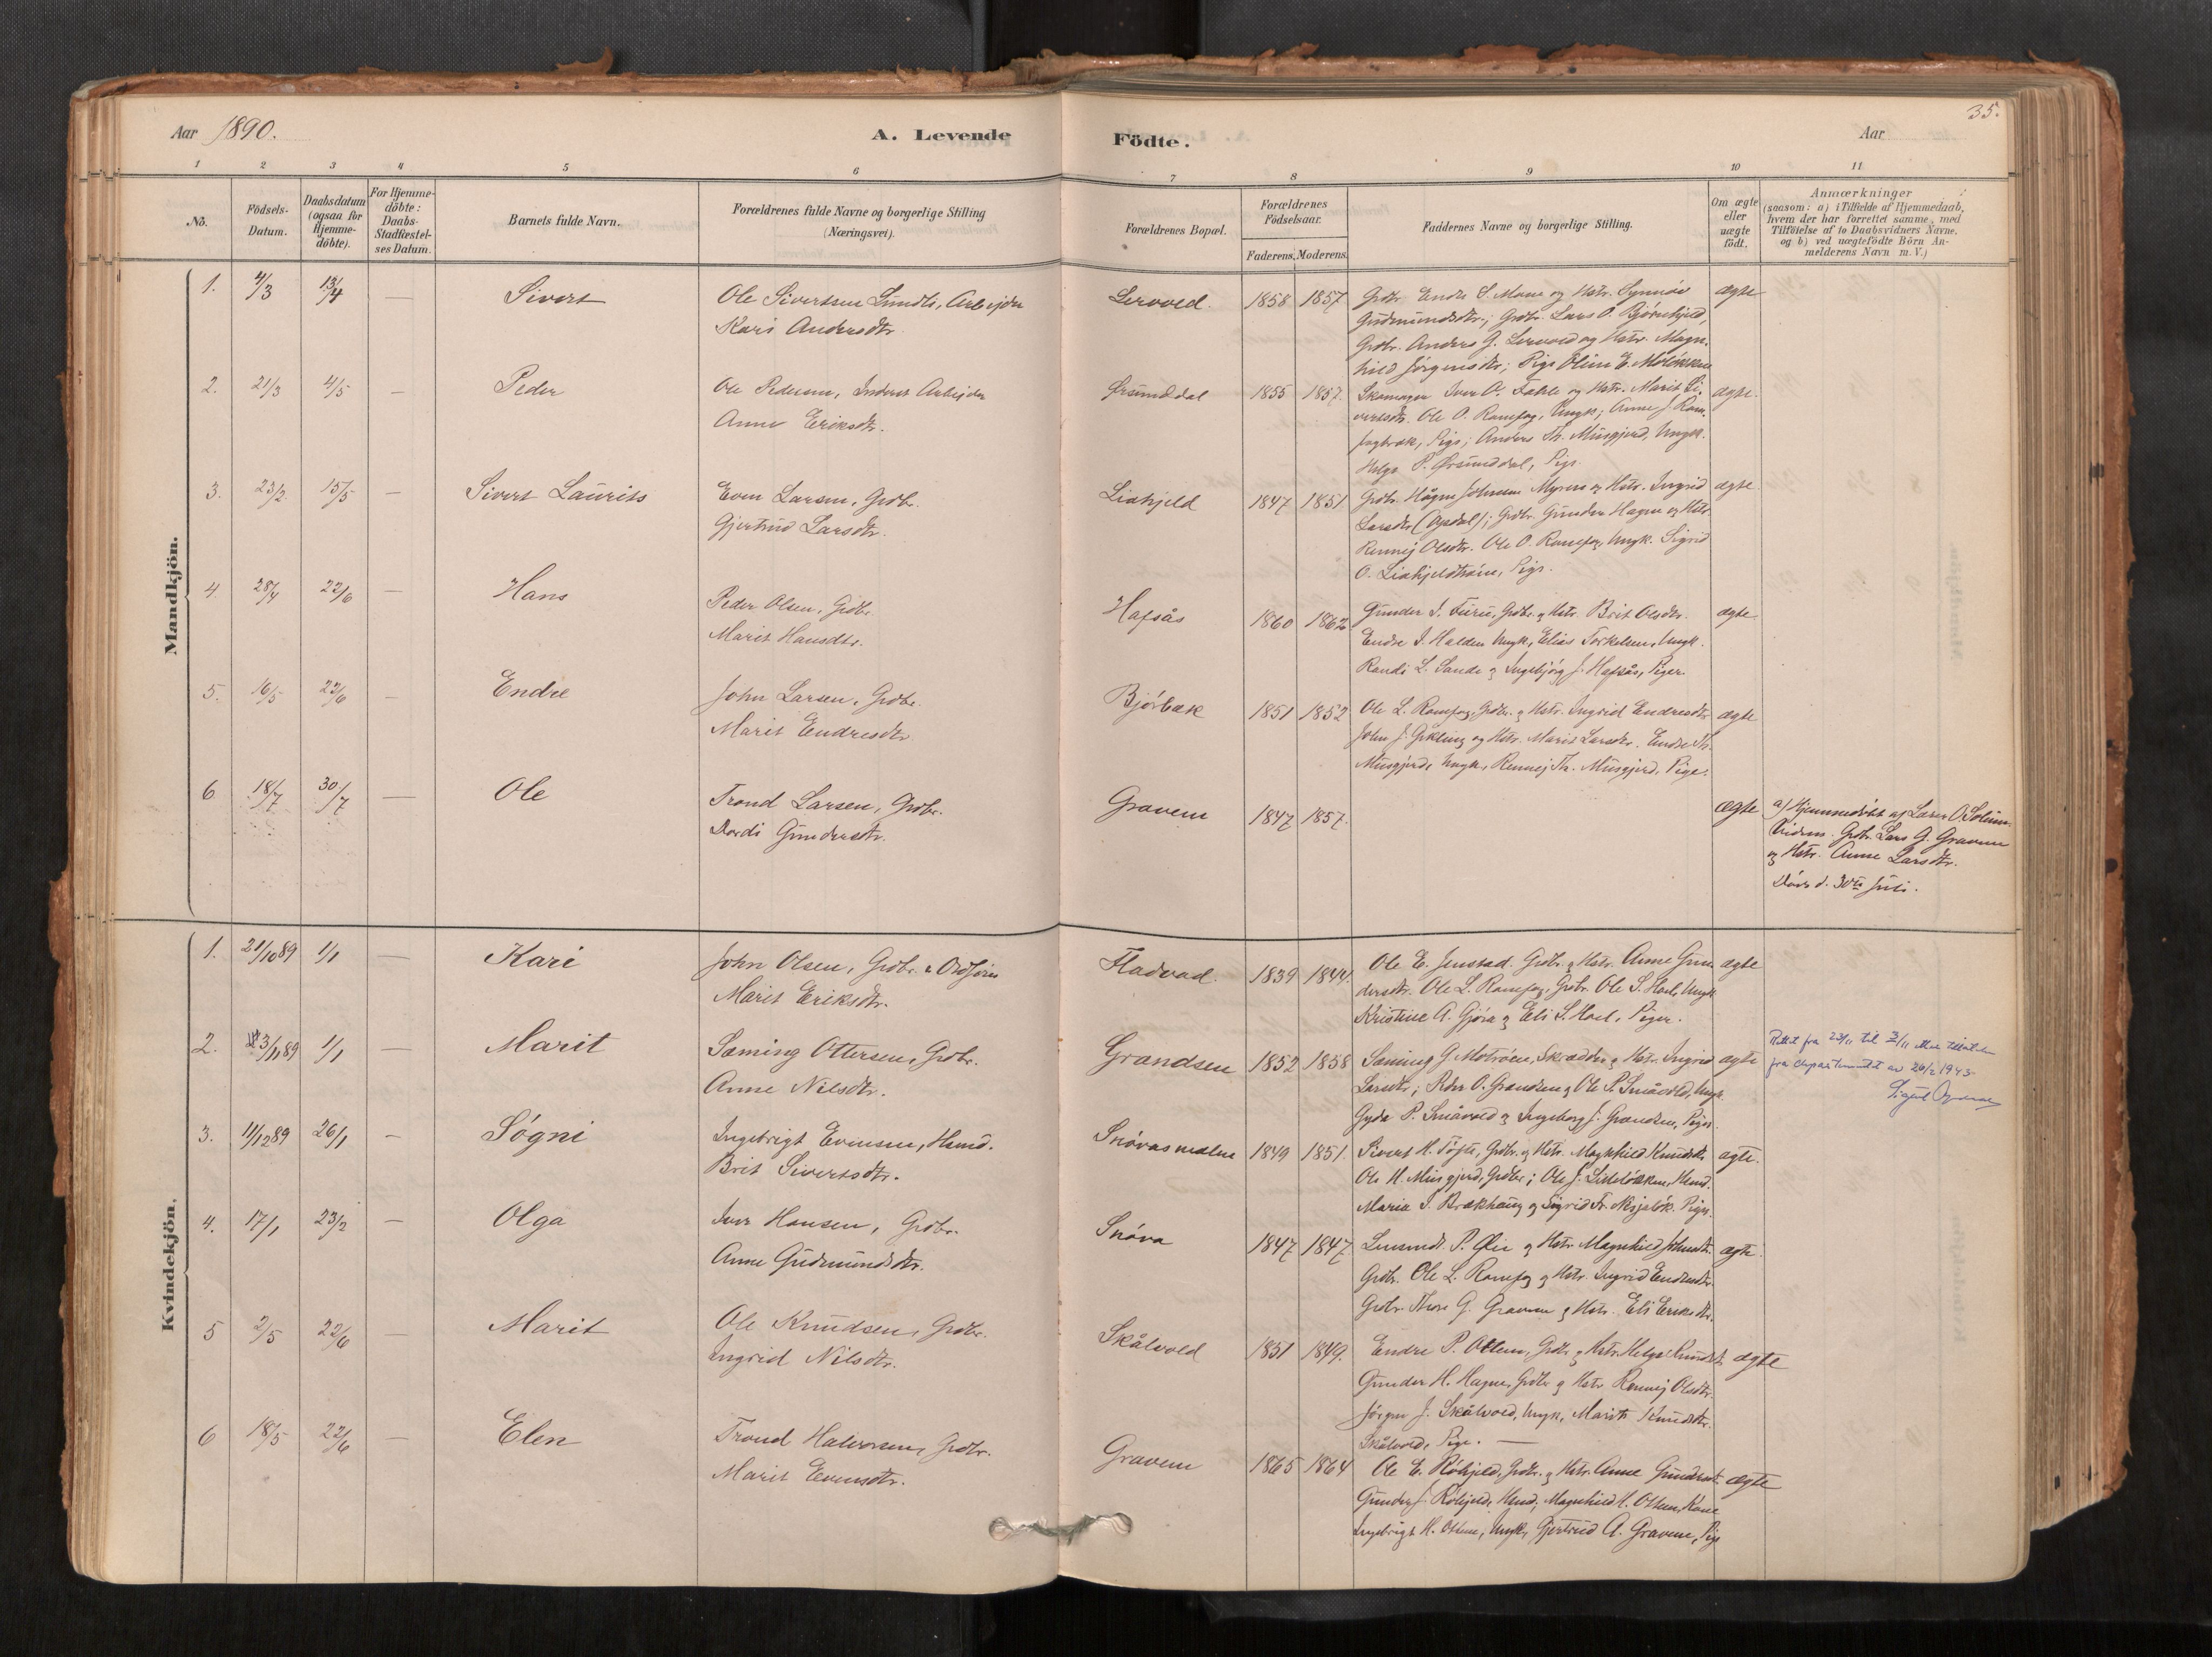 Aar 1890.
A. Levende
Födte.
Aar
35.
1 2 3 4 5 6 7 8 9 10 11
No.
Födsels-Datum.
Daabsdatum (ogsaa for Hjemme-döbte).
For Hjemme-döbte: Daabs-Stadfæstel-ses Datum.
Barnets fulde Navn.
Forældrenes fulde Navne og borgerlige Stilling
(Næringsvei).
Forældrenes Bopæl.
Forældrenes Födselsaar.
Faderens. Moderens.
Faddernes Navne og borgerlige Stilling.
Om ægte eller uægte födt.
Anmærkninger
(saasom: a) i Tilfælde af Hjemmedaab,
hvem der har forrettet samme, med
Tilföielse af to Daabsvidners Navne,
og b) ved uægtefödte Börn An-
melderens Navn m. V.)
Mandkjön.
1. 4/3 13/4 — Sivert Ole Sivertsen Lundli, Arbejder Lervold. 1858 1857 Grdbr. Endre S. Moen og Hstr. Synnöv ægte
Kari Andersdtr.
Gudmundsdtr.; Grdbr. Lars O. Björnhjeld,
Grdbr. Anders G. Lervold og Hstr. Magn-
hild Jörgensdtr; Pige Oline E.
2. 21/3 4/5 — Peder Ole Pedersen, Inderst Arbejder Ørsunddal 1855 1857. Skomager Iver O. Fahle og Hstr. Marit Si- ægte.
Anne Eriksdtr.
vertsdtr. Ole O. Romfog, Ungk; Anne J. Rom-
fogbak, Pige; Anders Th. Musgjerd, Ungk.
Helga P. Ørsunddal, Pige.
3. 23/2 15/5 — Sivert Laurits Even Larsen, Grdbr. Liahjeld 1847 1851 Grdbr. Hågen Johnsen Myren og Hstr. Ingrid ægte.
Gjertrud Larsdtr.
Larsdtr (Opdal); Grdbr. Gunder Hagen og Hstr.
Rennej Olsdtr. Ole O. Romfog, Ungk. Sigrid
O. Liahjeldtröen, Pige.
4. 28/4 22/6 — Hans Peder Olsen, Grdbr. Hafsås 1860 1862 Gunder I. Furu, Grdbr. og Hstr. Brit Olsdtr. ægte.
Marit Hansdtr.
Endre I. Halden Ungk, Elias Torkelsen, Ungk.
Randi L. Sande og Ingebjörg J. Hafsås, Piger.
5. 16/5 22/6 — Endre John Larsen, Grdbr. Bjørbæk 1851 1852 Ole L. Romfog, Grdbr. og Hstr. Ingrid Endresdtr. ægte
Marit Endresdtr.
John J. Gikling og Hstr. Marit Larsdtr. Endre Th.
Musgjerd, Ungk, Rennej Th. Musgjerd, Pige.
6 18/7 30/7 — Ole Trond Larsen, Grdbr. Gravem 1847 1857. ægte a) Hjemmedöbt af Lærer O. Solem.
Dordi Gundersdtr.
Vidner. Grdbr. Lars G. Gravem
og Hstr. Anne Larsdtr.
Döde d. 30te Juli.
Kvindekjön.
1. 21/10 89 1/1 — Kari John Olsen, Grdbr. & Ordförer Fladvad. 1839 1844. Ole E. Jenstad. Grdbr. og Hstr. Anne Gun- ægte
Marit Eriksdtr.
dersdtr. Ole L. Romfog, Grdbr. Ole S. Hoel, Ungk
Kristine A. Gjöra og Eli S. Hoel, Piger.
2. 3/11 89 1/1 — Marit Sæming Ottersen, Grdbr. Grandsen 1852 1858 Sæming G. Motröen, Skrædder og Hstr. Ingrid ægte
Rettet fra 23/11 til 3/11 etter tillatelse
fra departementet av 26/2 1943
Anne Nilsdtr.
Larsdtr; Peder O. Grandsen og Ole P. Småvold, Ungk.
Gyda P. Småvold og Ingeborg J. Grandsen, Piger.
3. 11/12 89 26/1 — Søgni Ingebrigt Evensen, Husmd. Snövasmælen 1849 1851. Sivert H. Töfte, Grdbr. og Hstr. Magnhild Knudsdtr. ægte.
Brit Sivertsdtr.
Ole H. Musgjerd, Grdbr; Ole J. Lillelökken, Husmd.
Maria I. Brækhaug og Sigrid Fr. Nisjalök. Piger.
4. 17/1 23/2 — Olga Iver Hansen, Grdbr. Snöva 1847 1847 Lensmd. P. Øie og Hstr. Magnhild Johnsdtr. ægte.
Anne Gudmundsdtr.
Grdbr. Ole L. Romfog og Hstr. Ingrid Endresdtr.
Grdbr. Thore G. Gravem og Hstr. Eli Eriksdtr.
5 2/5 22/6 — Marit Ole Knudsen, Grdbr. Skålvold 1851 1849. Endre P. Ottem, Grdbr. og Hstr. Helga Knudsdt. ægte
Ingrid Nilsdtr.
Gunder H. Hagen, Grdbr og Hstr Rennej Olsdtr.
Jörgen J. Skålvold, Ungk, Marit Knudsdtr.
Skålvold, Pige. —
6 18/5 22/6 — Elen Trond Halvorsen, Grdbr. Gravem 1865 1864 Ole E. Röhjeld, Grdbr. og Hstr. Anne Gundersdt. ægte
Marit Evensdtr.
Gunder J. Röhjeld, Husmd; Magnhild H. Ottem, Kone
Ingebrigt H. Ottem, Ungk, Gjertrud A. Gravem, Pige